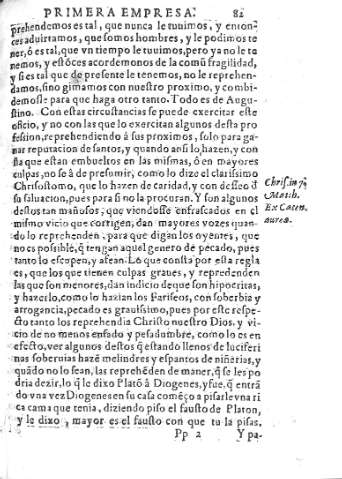 PRIMERA EMPRESA. 82
prehendemos es tal, que nunca le tuuimos, y enton-
ces aduirtamos, que somos hombres, y le podimos te
ner, ô es tal, que vn tiempo le tuuimos, pero ya no le te
nemos, y estõces acordemonos de la comũ fragilidad,
y si es tal que de presente le tenemos, no le reprehen-
damos, sino gimamos con nuestro proximo, y combi-
demosle para que haga otro tanto. Todo es de Augu-
stino. Con estas circunstãcias se puede exercitar este
oficio, y no con las que lo exercitan algunos desta pro
fession, reprehendiendo â sus proximos, solo para ga-
nar reputacion de santos, y quando ansi lo hazen, y con
sta que estan embueltos en las mismas, ô en mayores
culpas, no se â de presumir, como lo dize el clarissimo
Chrisostomo, que lo hazen de caridad, y con desseo đ
su saluacion, pues para si no la procuran. Y son algunos
destos tan mañosos, que viendosse enfrascados en el
mismo vicio que corrigen, dan mayores vozes quan-
do lo reprehenden, para que digan los oyentes, que
no es possible, q̃ tengan aquel genero de pecado, pues
tanto lo escupen, y afean. Lo que consta por esta regla
es, que los que tienen culpas graues, y reprehenden
las que son menores, dan indicio de que son hipocritas,
y hazerlo, como lo hazian los Fariseos, con soberbia y
arrogancia, pecado es grauissimo, pues por este respe-
cto tanto los reprehendia Christo nuestro Dios. y vi-
cio de no menos enfado y pesadumbre, como lo es en
efecto, ver algunos destos q̃ estando llenos de luciferi
nas soberuias hazẽ melindres y espantos de niñerias, y
quãdo no lo sean, las reprehẽden de maner, q̃ se les po
dria dezir, lo q̃ le dixo Platô â Diogenes, y fue, q̃ entrã
do vna vez Diogenes en su casa comẽço a pisarle vna ri
ca cama que tenia, diziendo piso el fausto de Platon,
y le dixo, mayor es el fausto con que tu la pisas.
Pp 2 Y pa-
Chris. in 7.
Matth.
Ex Caten.
aurea.